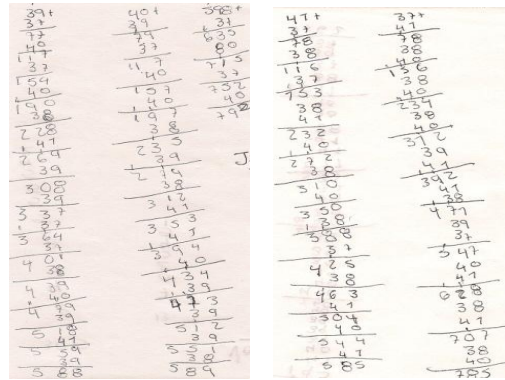 39+
37
77
40
117
37
154
40
190
38
228
41
269
39
308
39
337
37
364
37
401
38
439
40
479
39
518
41
559
39
588
40+
39
79
37
117
40
157
40
197
38
235
39
38
312
41
353
41
394
40
434
39
473
39
512
39
551
38
589
37
635
80
715
37
752
40
792
J
41+
37
78
38
116
37
153
38
41
232
40
272
38
310
40
350
38
37
425
38
463
41
504
40
544
41
585
37+
41
78
38
156
38
40
234
38
40
312
39
41
392
41
38
471
39
37
547
40
41
628
38
41
707
38
40
785